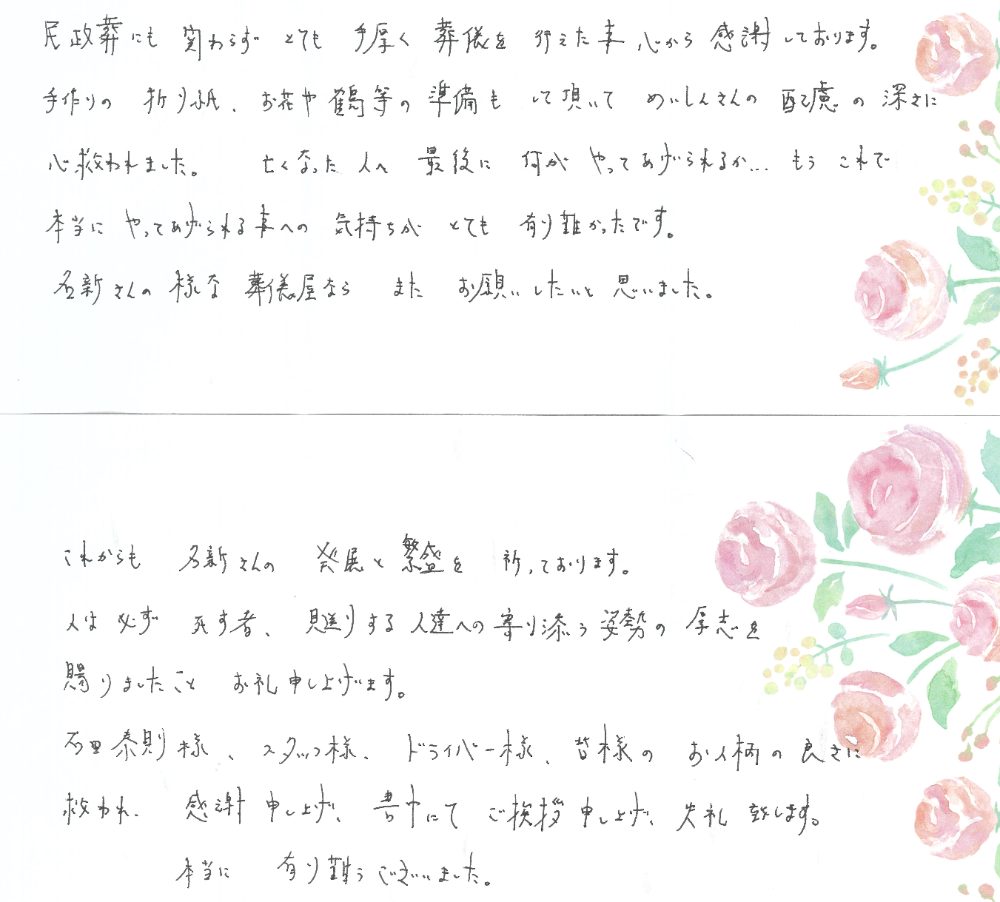 民政葬にも 変わらず とても 手厚く 葬儀を 行えた事 心から 感謝しております。
手作りの 折り紙、お花や 鶴等の 準備も して頂いて めいしんさんの 配慮の 深さに
心救われました。 亡くなった 人へ 最後に 何が やってあげられるか… もう これで
本当に やってあげられる事への 気持ちが とても 有り難かったです。
名新さんの 様な 葬儀屋なら また お願いしたいと 思いました。
これからも 名新さんの 発展と 繁盛を 祈っております。
人は 必ず 死す者、 見送りする 人達への 寄り添う 姿勢の 厚志を
賜りましたこと お礼申し上げます。
石田泰則様、 スタッフ様、 ドライバー様、 皆様の お人柄の 良さに
救われ、 感謝 申し上げ、 書中にて ご挨拶 申し上げ、 失礼 致します。
本当に 有り難うございました。